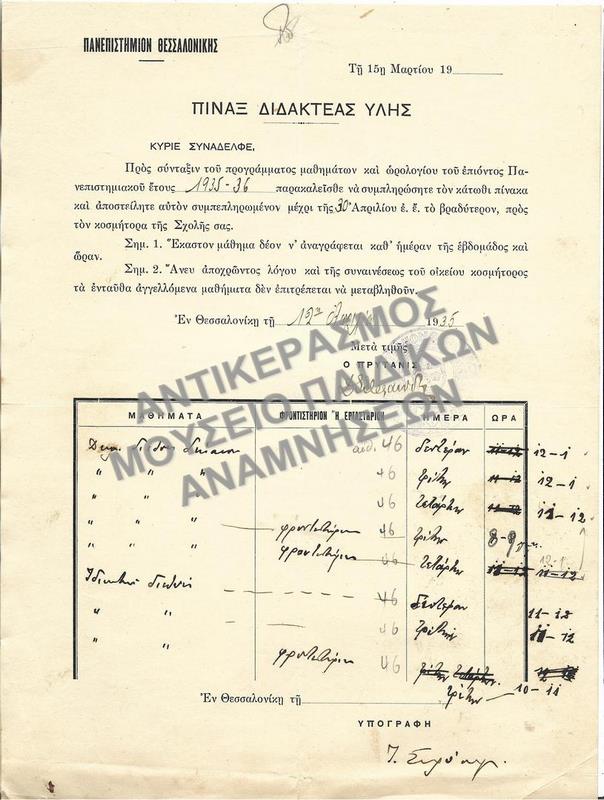 ΠΑΝΕΠΙΣΤΗΜΙΟΝ ΘΕΣΣΑΛΟΝΙΚΗΣ
Τῇ 15ῃ Μαρτίου 19
ΠΙΝΑΞ ΔΙΔΑΚΤΕΑΣ ΥΛΗΣ
ΚΥΡΙΕ ΣΥΝΑΔΕΛΦΕ,
Πρὸς σύνταξιν τοῦ προγράμματος μαθημάτων καὶ ὡρολογίου τοῦ ἐπιόντος Πα-
νεπιστημιακοῦ ἔτους 1935-36 παρακαλεῖσθε νὰ συμπληρώσητε τὸν κάτωθι πίνακα
καὶ ἀποστείλητε αὐτὸν συμπεπληρωμένον μέχρι τῆς 30 Ἀπριλίου ἐ. ἔ. τὸ βραδύτερον, πρὸς
τὸν κοσμήτορα τῆς Σχολῆς σας.
Σημ. 1. Ἕκαστον μάθημα δέον ν' ἀναγράφεται καθ' ἡμέραν τῆς ἑβδομάδος καὶ
ὥραν.
Σημ. 2. Ἄνευ ἀποχρῶντος λόγου καὶ τῆς συναινέσεως τοῦ οἰκείου κοσμήτορος
τὰ ἐνταῦθα ἀγγελλόμενα μαθήματα δὲν ἐπιτρέπεται νὰ μεταβληθοῦν.
Ἐν Θεσσαλονίκῃ τῇ 12ῃ 1935
Μετὰ τιμῆς
Ο ΠΡΥΤΑΝΙΣ
ΑΝΤΙΚΕΡΑΣΜΟΣ
ΜΟΥΣΕΙΟ ΠΑΙΔΙΚΩΝ
ΑΝΑΜΝΗΣΕΩΝ
ΜΑΘΗΜΑΤΑ ΦΡΟΝΤΙΣΤΗΡΙΟΝ Ἢ ΕΡΓΑΣΤΗΡΙΟΝ ΗΜΕΡΑ ΩΡΑ
αἰθ. 46 Δευτέραν 11-12 12-1
" " " 46 Τρίτην 11-12 12-1
" " " 46 Τετάρτην 11-12 11-12
" " " φροντιστήριον 46 Τρίτην 8-9
" " " φροντιστήριον 46 Τετάρτην 11-12 12-1
46 Δευτέραν 11-12
" " 46 Τρίτην 11-12
" " φροντιστήριον 46 Τρίτην Τετάρτην
Τρίτην 10-11
Ἐν Θεσσαλονίκῃ τῇ
ΥΠΟΓΡΑΦΗ